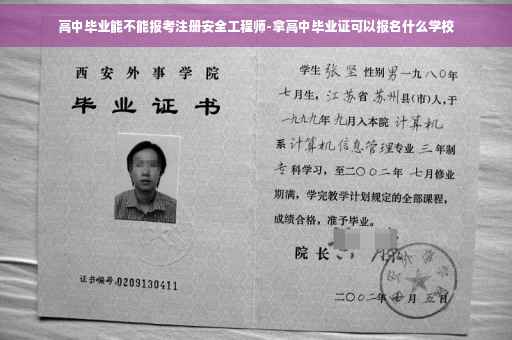 高中毕业能不能报考注册安全工程师-拿高中毕业证可以报名什么学校
西安外事学院
毕业证书
证书编号:0209130411
学生 张坚 性别 男 一九八〇年
七月生，江苏省 苏州县(市)人，于
一九九九年九月入本院 计算机
系 计算机信息管理 专业 三 年制
专科学习，至二〇〇二年 七月修业
期满，学完教学计划规定的全部课程，
成绩合格，准予毕业。
院长
二〇〇二年 月五日